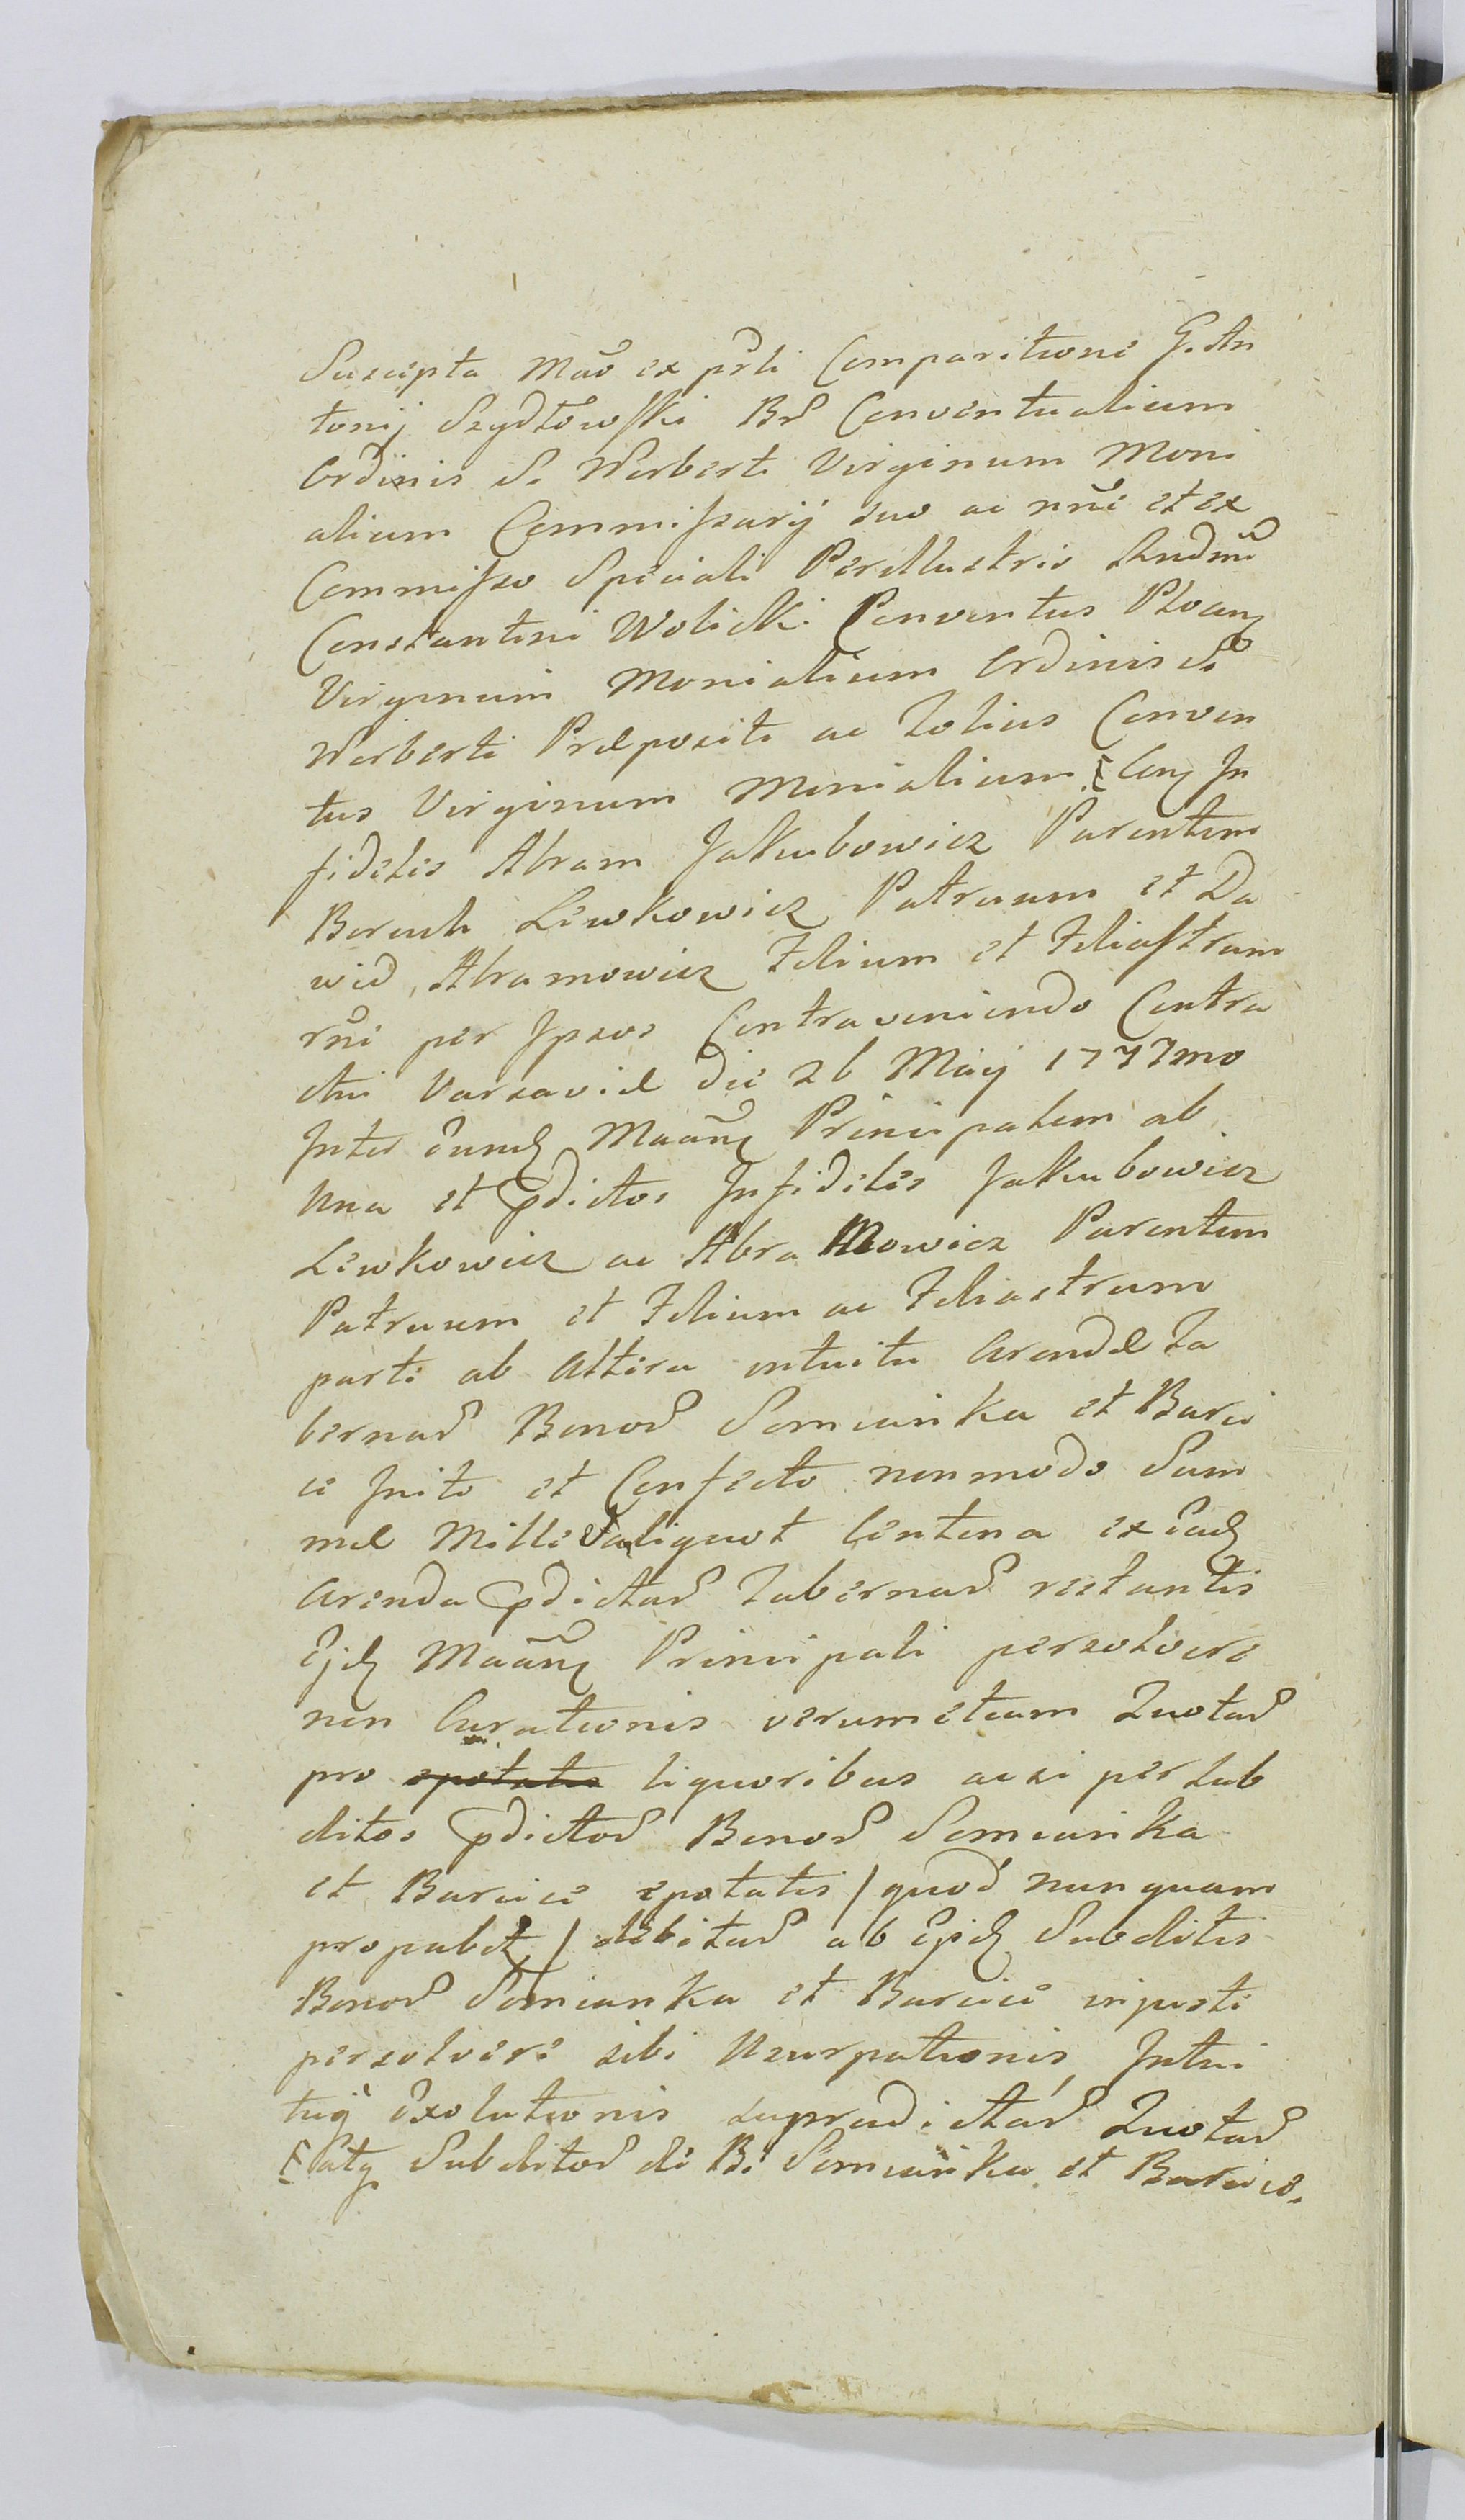 Suscepta Mão ex prti Comparitione G. An
tonij Szydłowski Br Conventualium
Ordinis S. Norberti Virginum Moni
alium Commissarij suo ac nñe et ex
Commisso Speciali Perillustris Rndmi
Constantini Wolicki Conventus Ploceñ
Virginum Monialium Ordinis S.
Norberti Præpositi ac Totius Conven
tus Virginum Monialium Cong In
fideles Abram Jakubowicz Parentem
Boruch Lewkowicz Patruum et Da
wid Abramowicz Filium et Filiastrum
rñi per Ipsos Contraveniendo Contra
ctui Varsaviæ die 26 Maij 1777mo
Inter eund Maañ Principalem ab
una et pdictos Infideles Jakubowicz
Lewkowicz ac Abramowicz Parentem
Patruum et Filium ac Filiastrum
parti ab altera intuitu Arendæ Ta
bernar Bonor Somianka et Barci
ce Inito et Confecto nonmodo Sum
mæ Mille aliquot Centena ex ead
Arenda pdictar Tabernar restantis
Ejd Maañ Principali persolvere
non Curationis verumetiam Quotar
pro epotatis liquoribus acsi per Sub
ditos pdictor Bonor Somianka
et Barcice epotatis / quod nunquam
probabit / debitar ab Ejsd Subditis
Bonor Somianka et Barcice injuste
persolvere sibi Usurpationis, Intui
tuq exolutionis supradictar Quotar
atq Subditor de B. Somianka et Barcice.